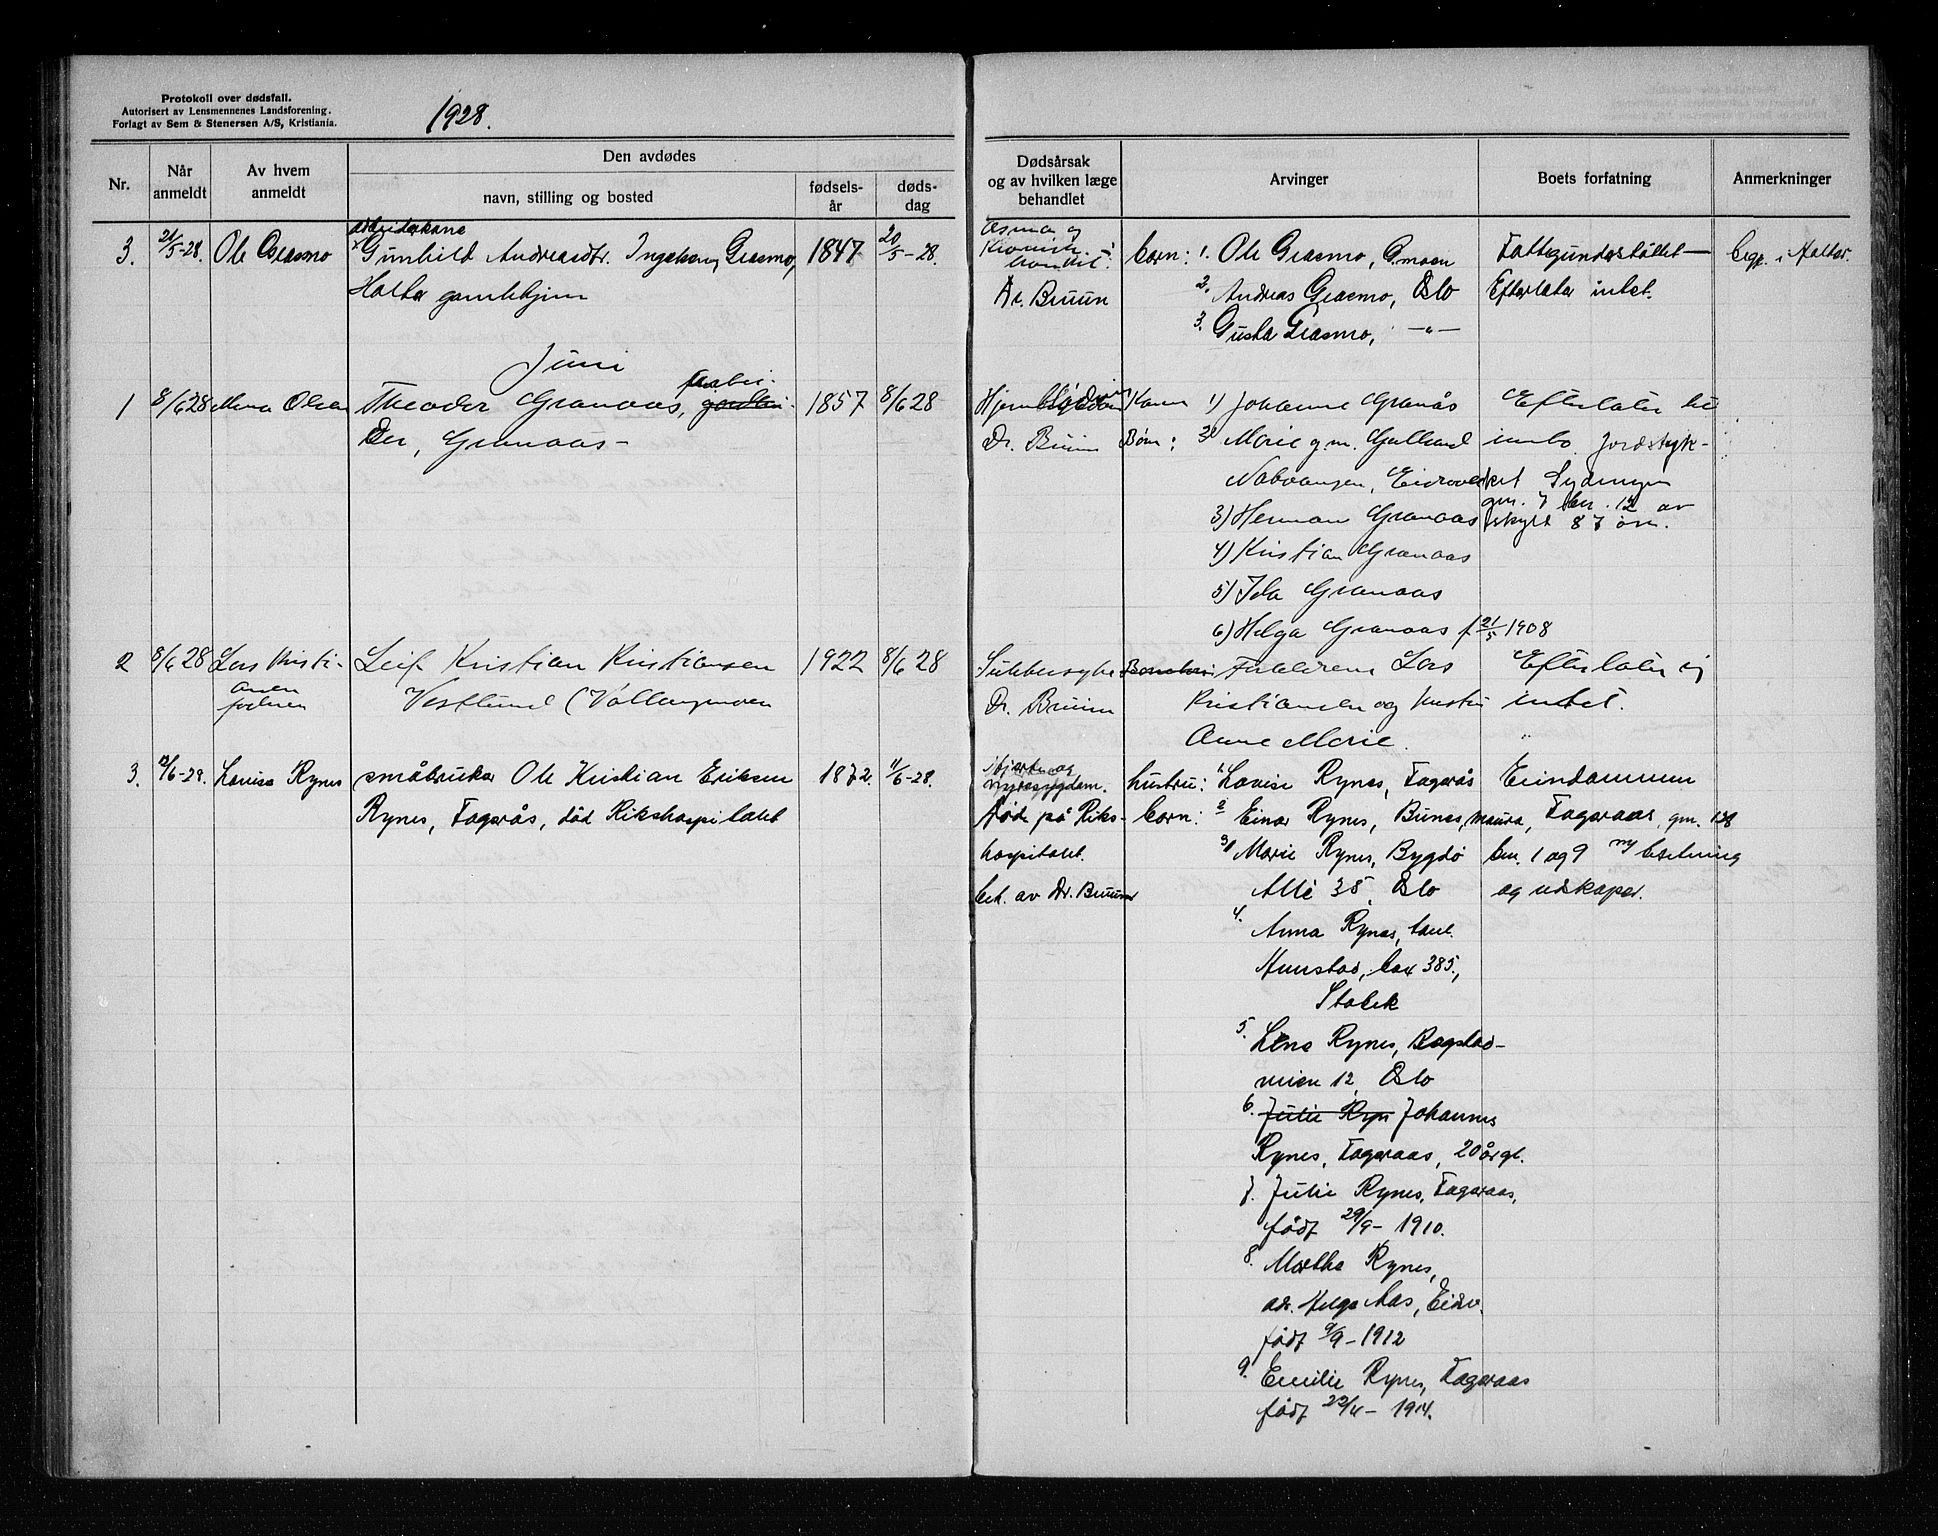 Protokoll over dødsfall.
Autorisert av Lensmennenes Landsforening.
Forlagt av Sem & Stenersen A/S, Kristiania.
1928.
Nr.
Når anmeldt
Av hvem anmeldt
Den avdødes
navn, stilling og bosted
fødsels-år
døds-dag
Dødsårsak og av hvilken læge behandlet
Arvinger
Boets forfatning
Anmerkninger
3. 21/5-28. Ole Græsmo
arbeiderkone
Gunhild Andreasdtr. Græsmo, 1847 20/5-28.
Holter gamlehjem
Asma og
kronisk
Dr. Bruun
barn: 1. Ole Græsmo, G.moen
2. Andreas Græsmo, Oslo
3. Gusta Græsmo, -"-
Fattigunderstøttet-
Efterlater intet.
Begr. i Holter.
Juni
1 8/6 28 Olsen
Theodor Granaas, 1857 8/6 28
der, Granaas-
Dr. Bruun
Kone 1) Johanne Granås
Børn: 2) Marie g.m. Gulbrand
Nabvangen, Eidsverket
3) Herman Granaas
4) Kristian Granaas
5) Ida Granaas
6) Helga Granaas f 21/5 1908
Efterlater
innbo. Jordstyk-
ket
gn. 7 bn. 12 av
skyld 87 øre.
2 8/6 28 Lars Kristi-
ansen
faderen
Leif Kristian Kristiansen 1922 8/6 28
Vestlund
Dr. Bruun
Foreldrene Lars
Kristiansen og hustru
Anne Marie.
Efterlater sig
intet.
3. 12/6-28. Lovise Rynes
småbruker Ole Kristian Eriksen 1872. 11/6-28.
Rynes, Fagerås, død Rikshospitalet
hjerte og
nyresygdom.
Døde på Riks-
hospitalet.
beh. av Dr. Bruun
hustru: 1. Lovise Rynes, Fagerås
barn: 2 Einar Rynes, Bunes, Maura,
3) Marie Rynes, Bygdø
Allé 35, Oslo
4. Anna Rynes,
box 385,
Stabek
5. Lina Rynes, Bogstad-
veien 12, Oslo
6. Julie Ryn Johannes
Rynes, Fageraas, 20 år gl.
7. Julie Rynes, Fageraas,
født 29/9-1910.
8. Martha Rynes,
adr. Helge Aas, Eidsv.
født 9/9-1912
9. Emilie Rynes, Fageraas
født 22/4-1914.
Eiendommen
Fageraas, gn. 138
bn. 1 og 9 besetning
og redskaper.